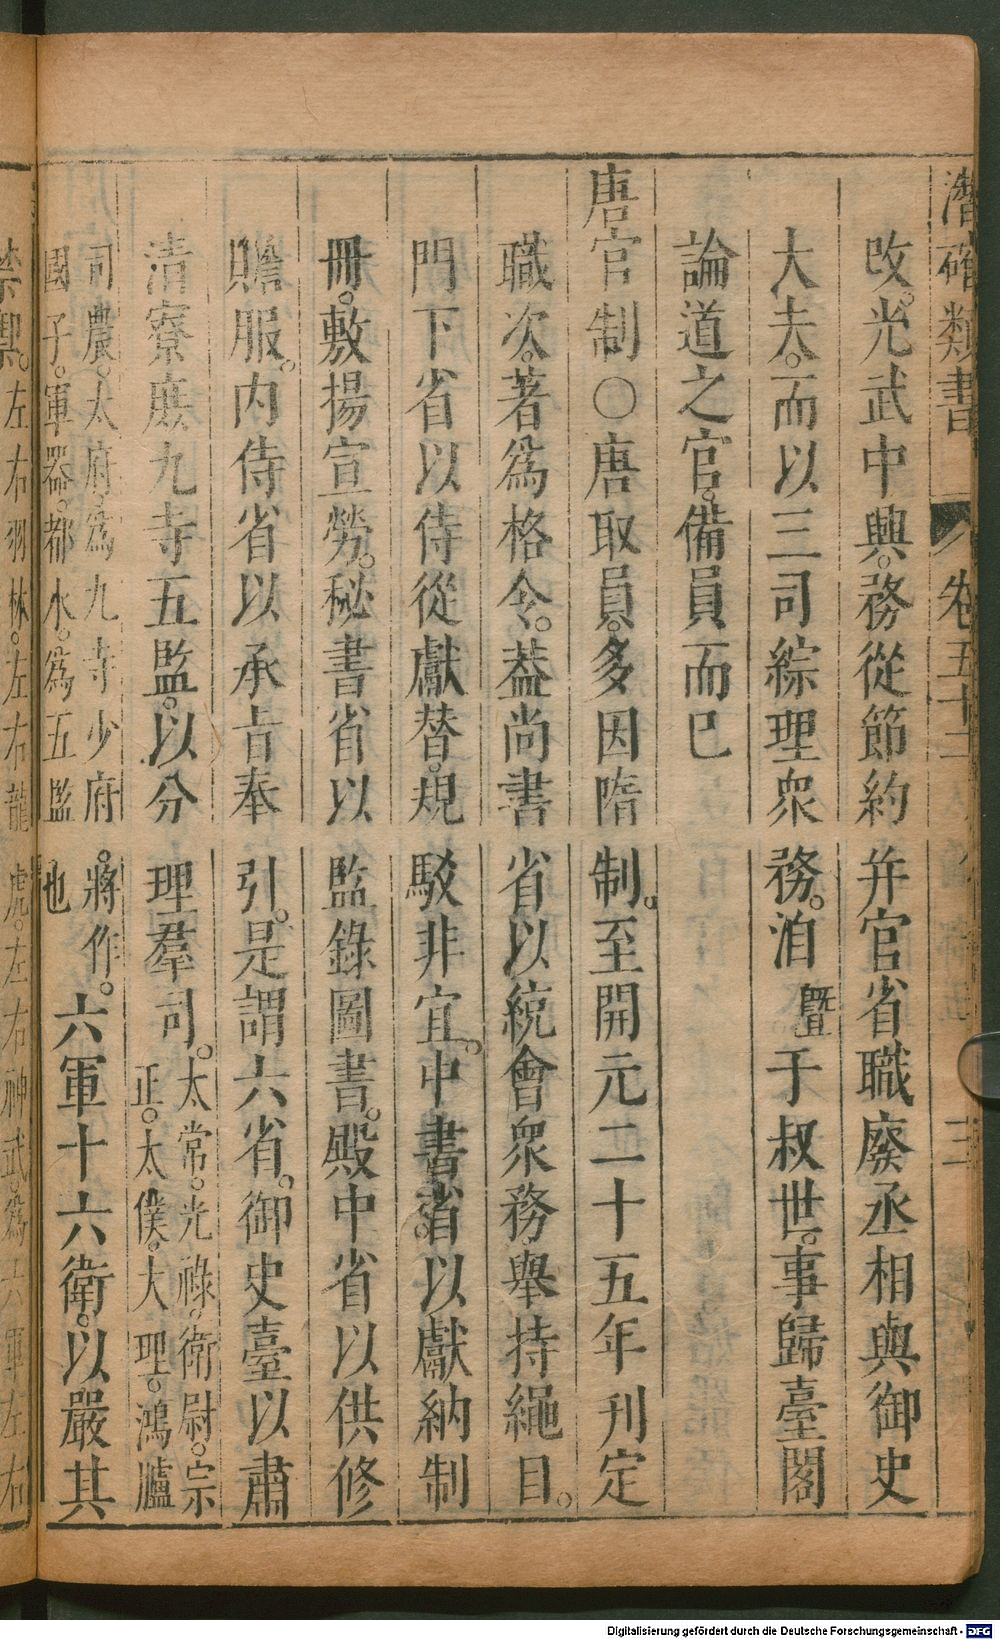 潛確類書 卷五十二 三
改。光武中興。務從節約并官省職廢。丞相與御史
大夫。而以三司綜理眾務。洎曁于叔世。事歸臺閣
論道之官。備員而已
唐官制○唐取員。多因隋制。至開元二十五年刊定
職次。著為格令。葢尚書省以統會眾務。舉持繩目。
門下省以侍從獻替。規駁非宜。中書省。以獻納制
冊。敷揚宣勞。秘書省以監錄圖書。殿中省以供修
贍服。內侍省以承旨奉引。是謂六省。御史臺以肅
清寮庶九寺五監。以分理羣司。太常。光祿。衛尉。宗
正。太僕。大理。鴻臚
司農。太府為九寺少府。將作。
國子。軍器。都水。為五監也
六軍十六衛。以嚴其
禁禦。左右羽林。左右龍虎。左右神武為六軍左右
Digitalisierung gefördert durch die Deutsche Forschungsgemeinschaft - DFG